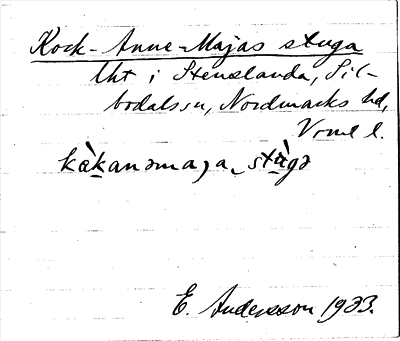 Kock-Anne-Majas stuga
lht i Stenslanda, Sil-
bodals sn, Nordmarks hd,
Vrml l.
stùgə
E. Andersson 1933.